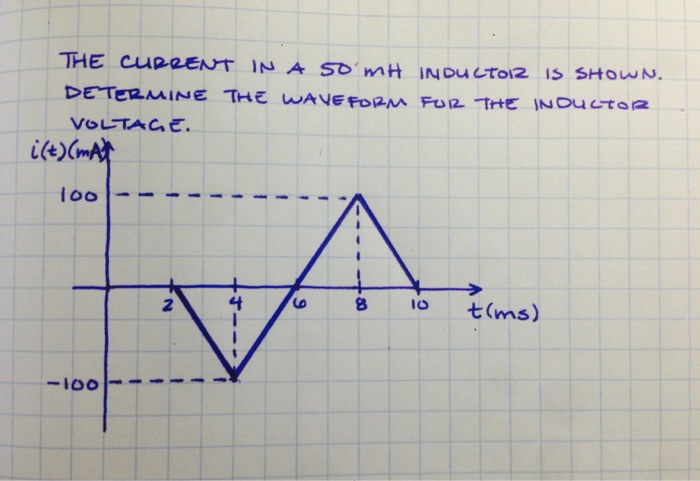 THE CURRENT IN A 50 mH INDUCTOR IS SHOWN.
DETERMINE THE WAVEFORM FOR THE INDUCTOR
VOLTAGE.
i(t)(mA)
100
2 4 6 8 10 t(ms)
-100